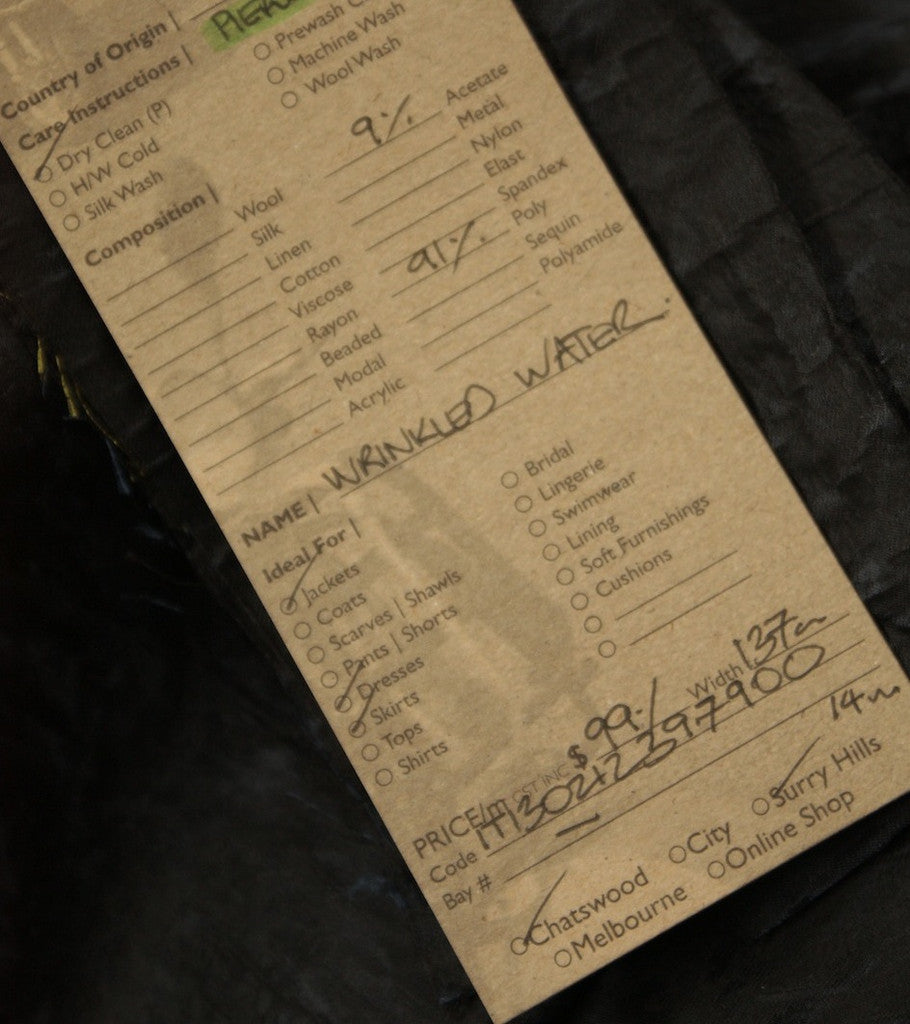 Country of Origin |
Care Instructions |
Dry Clean (P)
H/W Cold
Silk Wash
Prewash
Machine Wash
Wool Wash
Composition |
Wool
Silk
Linen
Cotton
Viscose
Rayon
Beaded
Modal
Acrylic
9% Acetate
Metal
Nylon
Elast
Spandex
91% Poly
Sequin
Polyamide
NAME | WRINKLED WATER.
Ideal For |
Jackets
Coats
Scarves | Shawls
Pants | Shorts
Dresses
Skirts
Tops
Shirts
Bridal
Lingerie
Swimwear
Lining
Soft Furnishings
Cushions
PRICE/m GST INC $99./ Width 137
Code
Bay # — 14m
Chatswood City Surry Hills
Melbourne Online Shop